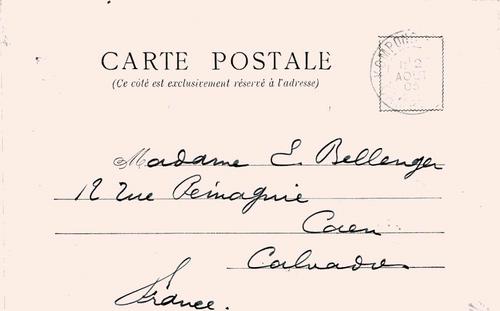 CARTE POSTALE
(Ce côté est exclusivement réservé à l'adresse)
AOUT
05
Madame E. Bellenger
12 Rue Pémagnie
Caen
Calvados
France.